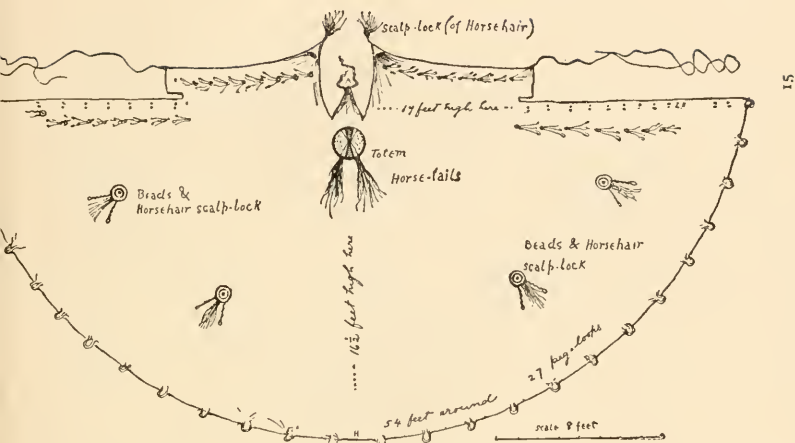 Scalp-lock (of Horsehair)
15
17 feet high here
Totem
Horse-tails
Beads &
Horsehair scalp-lock
Beads & Horsehair
scalp-lock
16½ feet high here
27 peg-loops
54 feet around
scale 8 feet